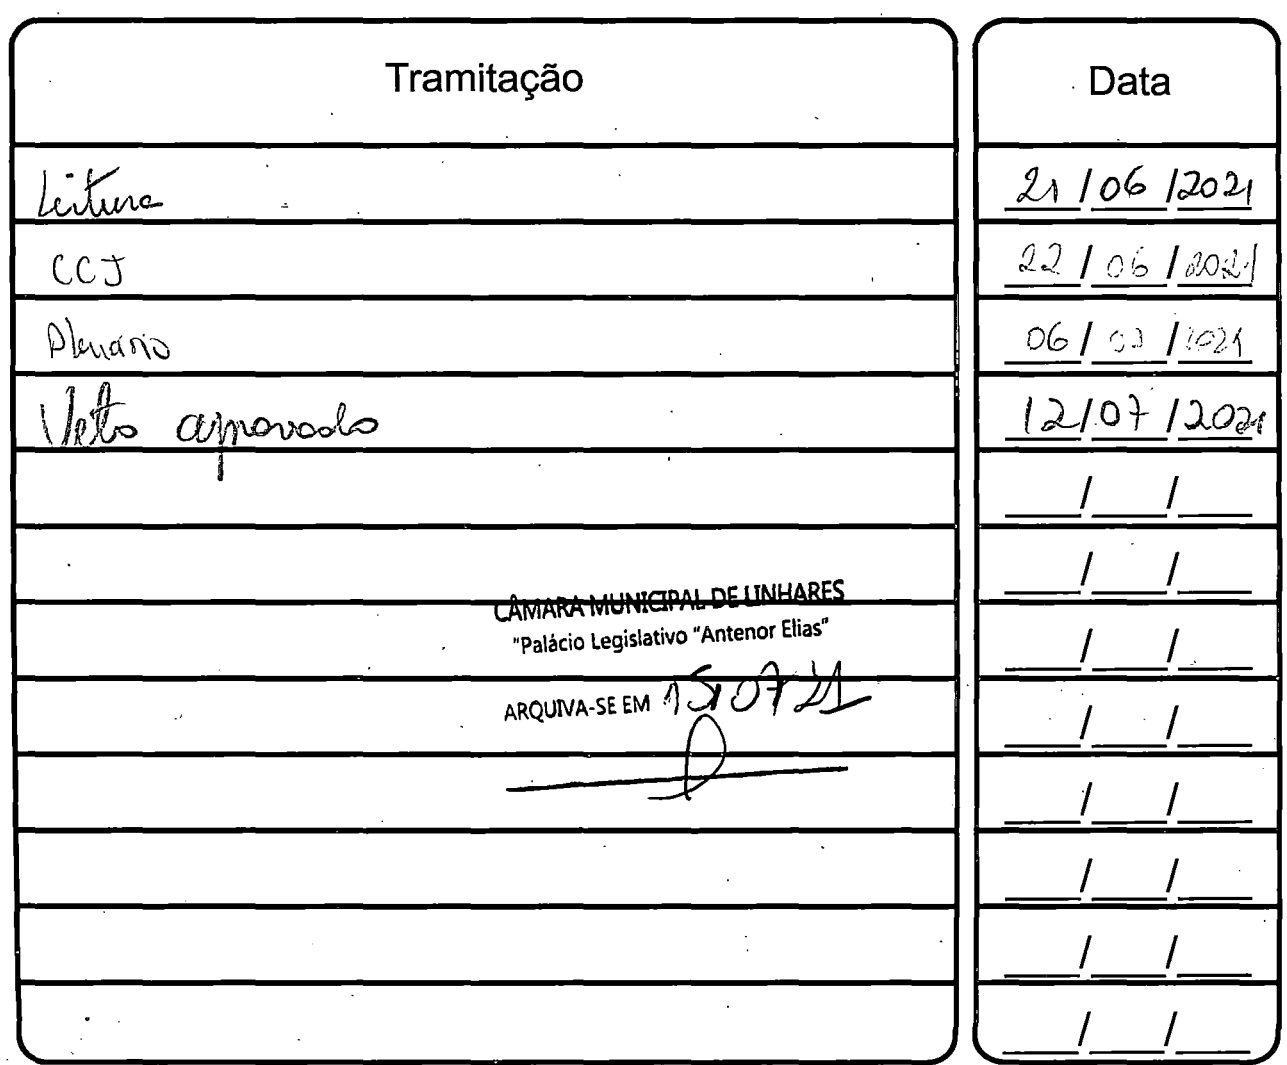 Tramitação Data
Leitura 21/06/2021
CCJ 22/06/2021
Plenário 06/ /2021
Veto aprovado 12/07/2021
CÂMARA MUNICIPAL DE LINHARES
"Palácio Legislativo "Antenor Elias"
ARQUIVA-SE EM 15/07/21